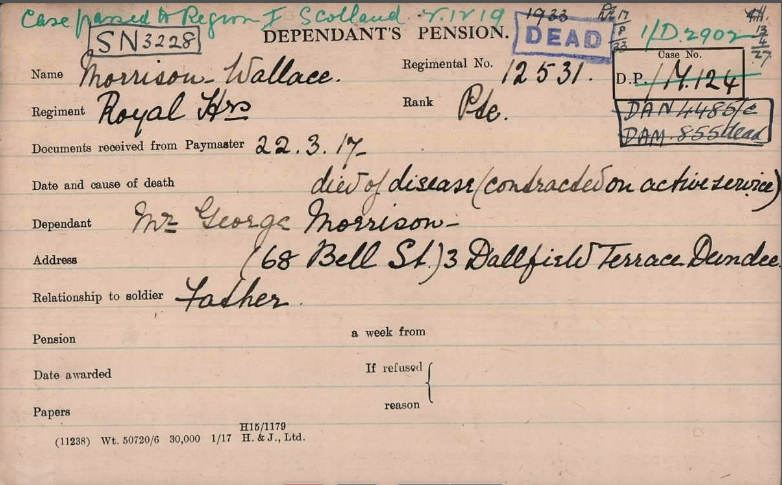 Case passed to Region I Scotland 2.12.19 1933
SN 3228
DEPENDANT'S PENSION.
DEAD
1/D.2902
Name Morrison - Wallace.
Regimental No. 12531.
Case No.
D.P./M.124
Regiment Royal Hrs
Rank Pte.
DAN 4485/C
DAM. 855 dead
Documents received from Paymaster 22.3.17-
Date and cause of death died of disease (contracted on active service)
Dependant Mr George Morrison-
Address (68 Bell St.) 3 Dallfield Terrace Dundee
Relationship to soldier Father.
Pension a week from
Date awarded If refused
reason
Papers
H15/1179
(11238) Wt. 50720/6 30,000 1/17 H. & J., Ltd.